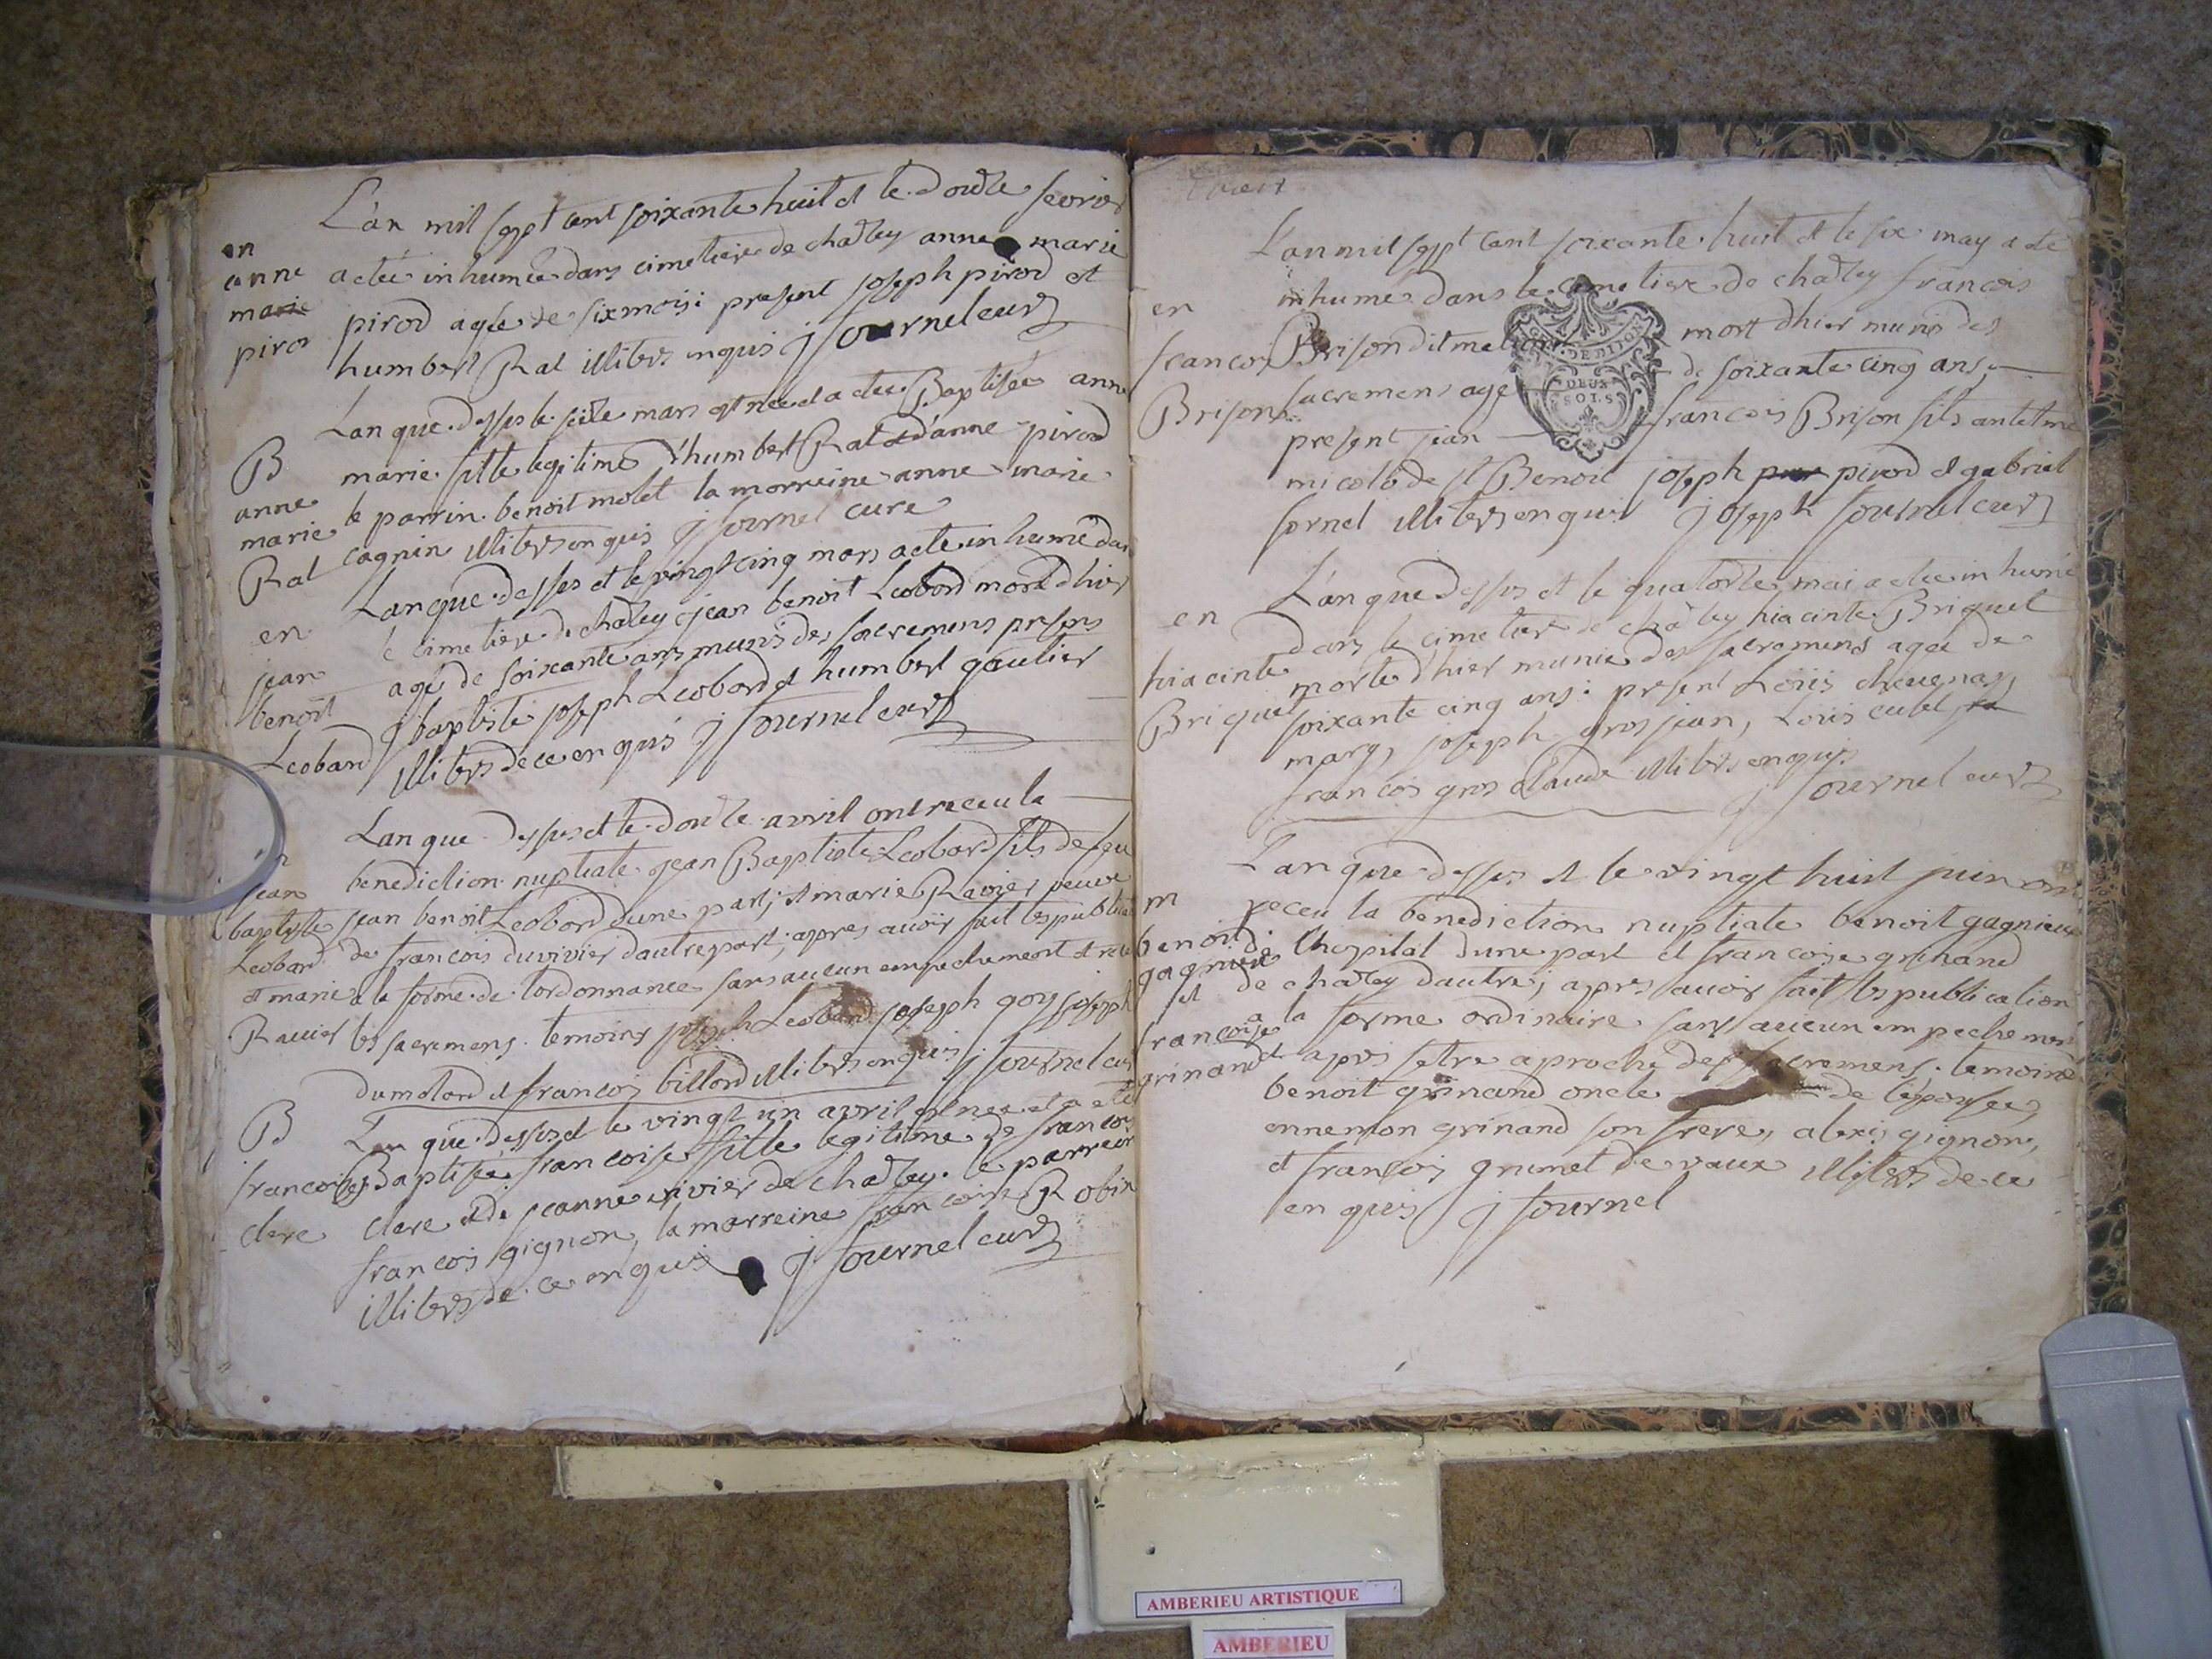 L'an mil sept cent soixante huit et le douze fevrier
en
anne
marie
pirod
a eteé inhumeé dans cimetiere de chaley anne marie
pirod agée de six mois; present joseph pirod et
humbert Rat illiters enquis j fournel curé
L'an que dessus le seize mars est neé et a eteé Baptiseé anne
B
anne
marie
Rat
marie fille legitime d'humbert Rat et d'anne pirod
le parrin benoit molet la marreine anne marie
cagnin illiters enquis j fournel curé
L'an que dessus et le vingt cinq mars a eté inhumé dans
en
jean
benoit
Leobard
le cimetiere de chaley jean benoit Leobord mort d'hier
agé de soixante ans munis des sacremens presens
j baptiste joseph Leobord et humbert gautier
illiters de ce enquis j fournel curé
L'an que dessus et le douze avril ont receu la
m
jean
baptiste
Leobard
et marie
Ravier
benediction nuptiale jean Baptiste Leobard fils de feu
jean benoit Leobord d'une part, et marie Ravier veuve
de francois duvivier d'autre part; apres avoir fait les publica
a la forme de l'ordonnance sans aucun empechement et receu
les sacremens. temoins joseph Leobard joseph goy joseph
dumolard et francois billord illiters enquis j fournel curé
B
francoise
clere
L'an que dessus et le vingt un avril est neé et a eté
Baptiseé francoise fille legitime de francois
clere et de jeanne vivier de chaley. le parrein
francois gignon, la marreine francoise Robin
illiters de ce enquis j fournel curé
L'an mil sept cent soixante huit et le six may a eté
en
francois
Brison
inhumé dans le cimetiere de chaley francois
Brison dit mort d'hier munis des
sacremens agé de soixante cinq ans,
present jean francois Brison fils antelme
micolle de st Benoit joseph pirod et gabriel
fornel illiters enquis joseph fournel curé
GEN. DE DIJON
DEUX
SOLS
L'an que dessus et le quatorze mai a eteé inhumé
en
hiacinte
Briquet
dans le cimetiere de chaley hiacinte Briquet
morte d'hier munie des sacremens ageé de
soixante cinq ans: present Loüis chevenas,
marq, joseph gros jean, Loüis cubel,
francois gros claude illiters enquis
j fournel curé
L'an que dessus et le vingt huit juin ont
m
benoit
gagnieux
et
francoise
grinand
receu la benediction nuptiale benoit gagnieux
de l'hopital d'une part et francoise grinand
de chaley d'autre; apres avoir fait les publications
a la forme ordinaire sans aucun empechement
et apres s'etre aproché des sacremens. temoins
benoit grinand oncle de l'epouseé,
ennemon grinand son frere, alexis gignon,
et francois grumet de vaux illiters de ce
enquis j fournel
AMBERIEU ARTISTIQUE
AMBERIEU